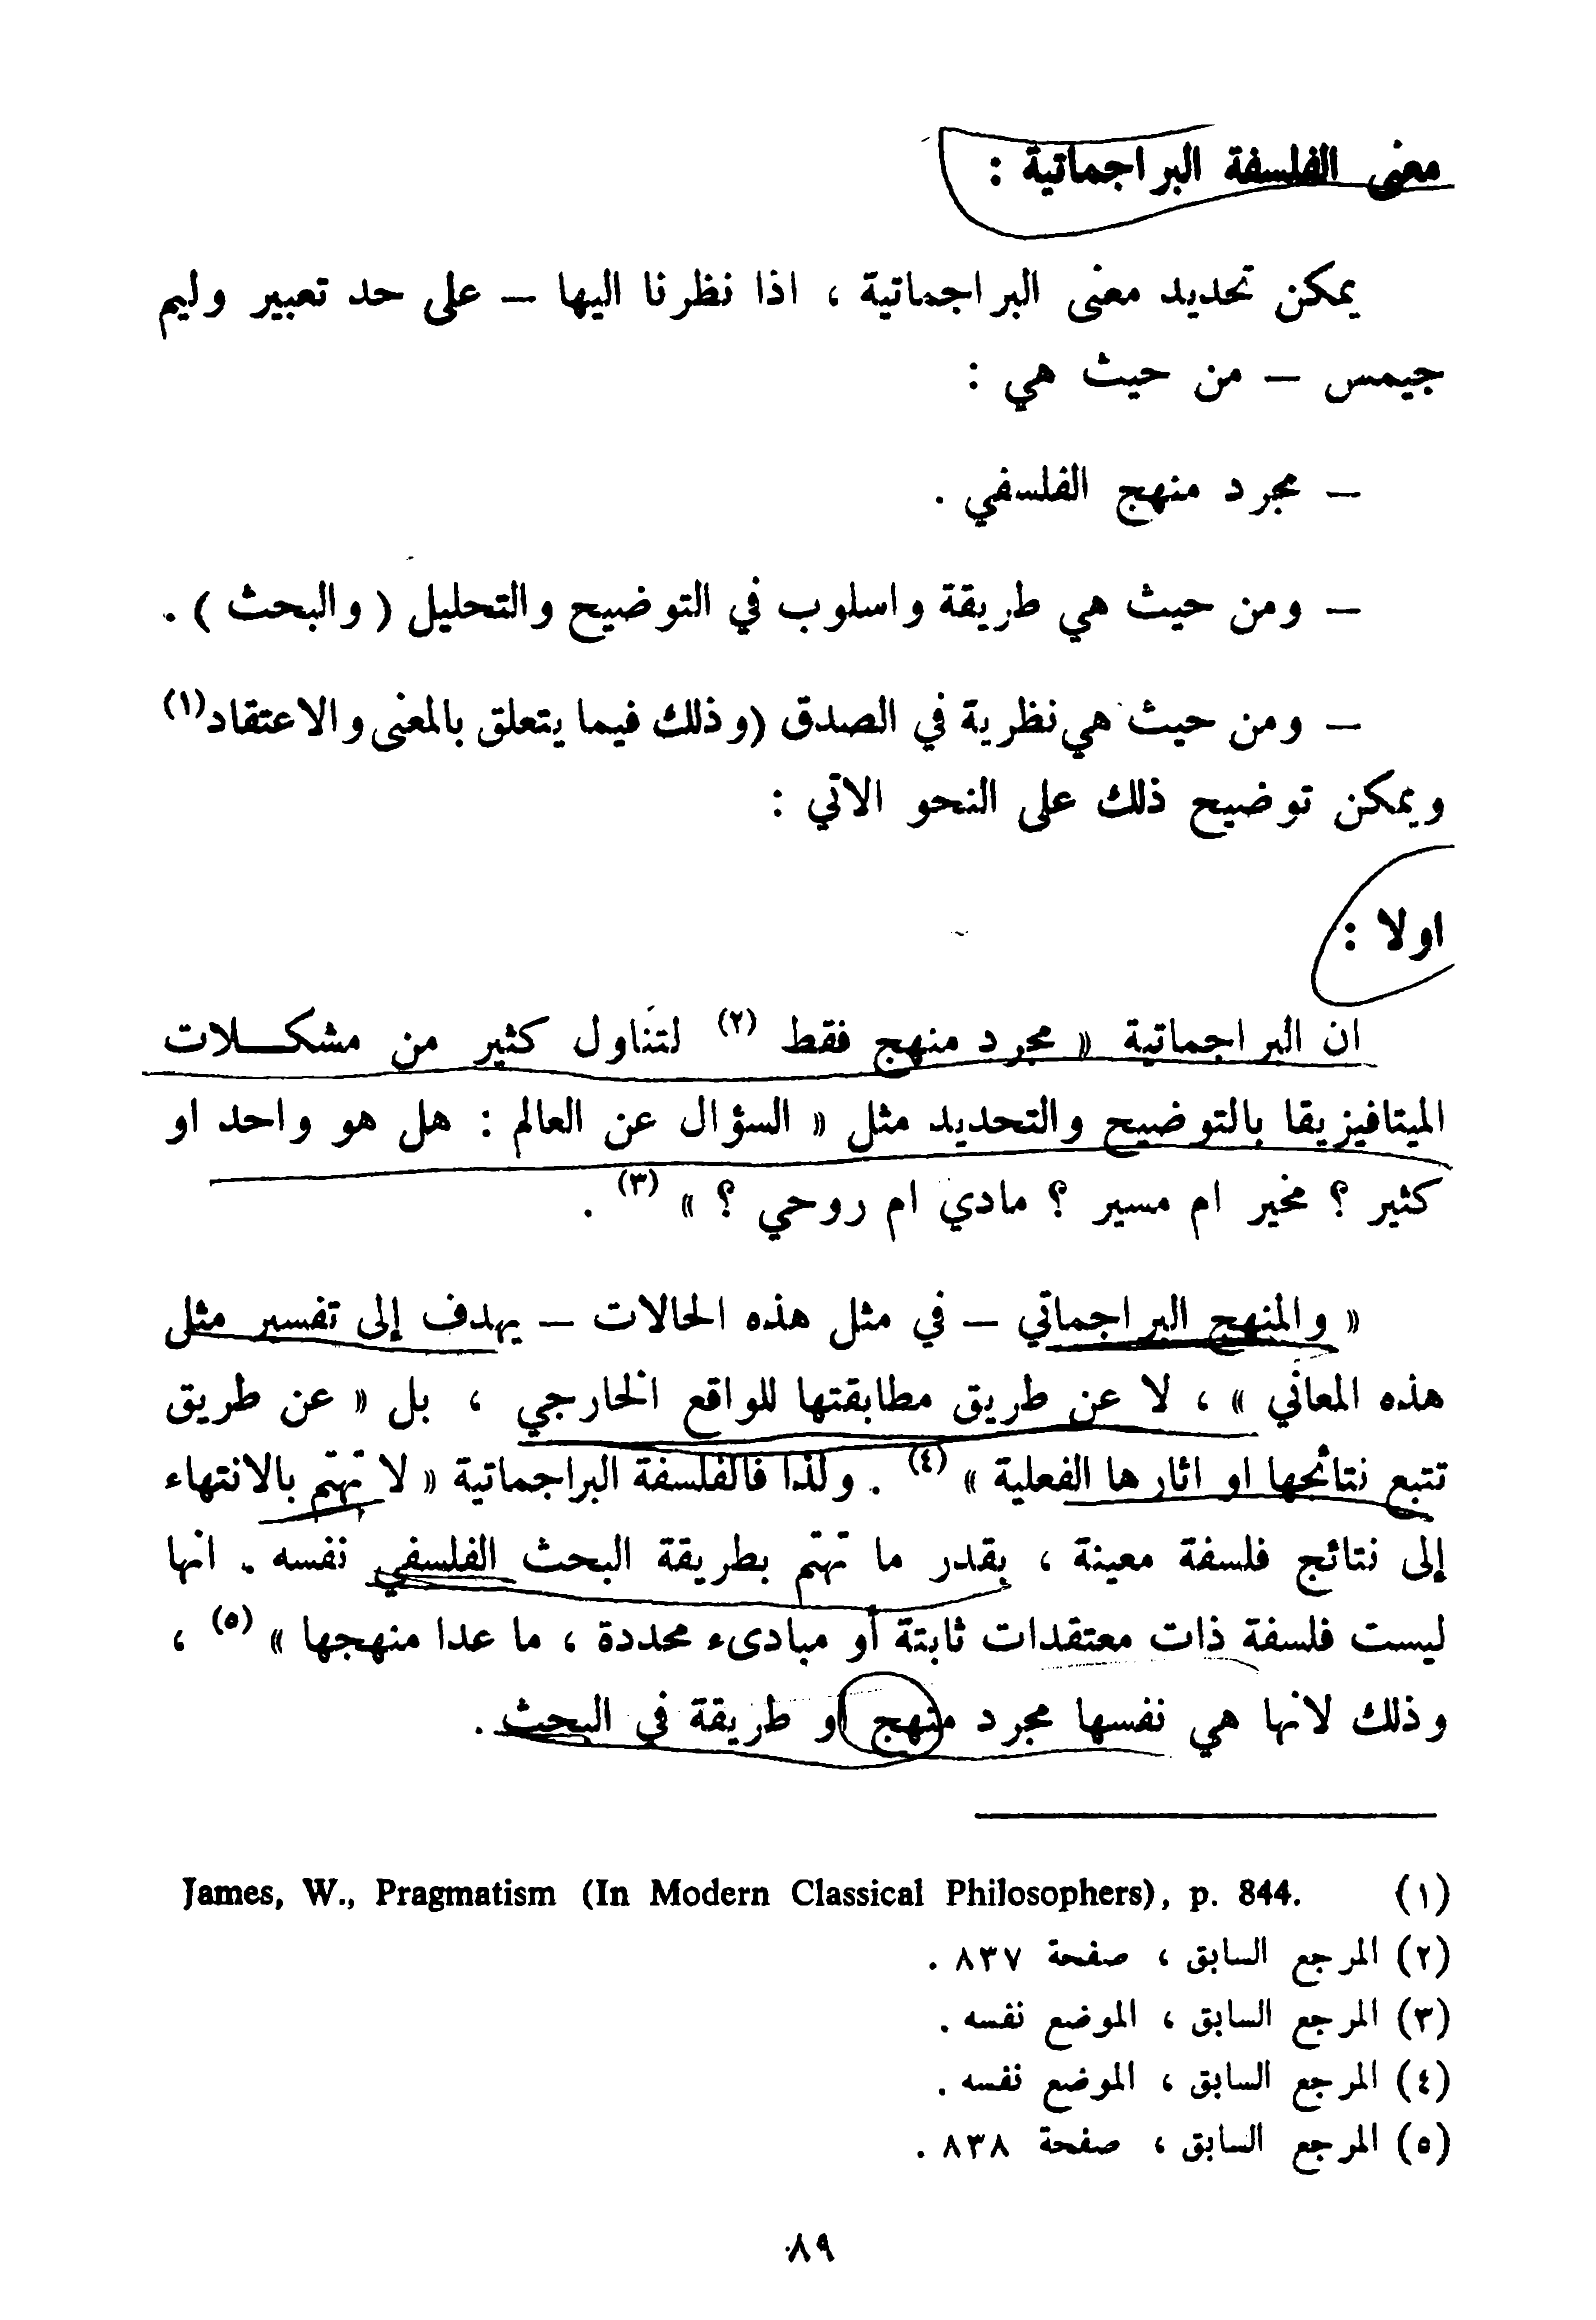 معنى الفلسفة البراجماتية :
يمكن تحديد معنى البراجماتية ، اذا نظرنا اليها – على حد تعبير وليم
جيمس – من حيث هي :
– مجرد منهج الفلسفي .
– ومن حيث هي طريقة واسلوب في التوضيح والتحليل ( والبحث ) .
– ومن حيث هي نظرية في الصدق (وذلك فيما يتعلق بالمعنى والاعتقاد(١)
ويمكن توضيح ذلك على النحو الآتي :
اولا :
ان البراجماتية « مجرد منهج فقط (٢) لتناول كثير من مشكــلات
الميتافيزيقا بالتوضيح والتحديد مثل « السؤال عن العالم : هل هو واحد او
كثير ؟ مخير ام مسير ؟ مادي ام روحي ؟ » (٣) .
« والمنهج البراجماتي – في مثل هذه الحالات – يهدف إلى تفسير مثل
هذه المعاني » ، لا عن طريق مطابقتها للواقع الخارجي ، بل « عن طريق
تتبع نتائجها او اثارها الفعلية » (٤) . ولذا فالفلسفة البراجماتية « لا تهتم بالانتهاء
إلى نتائج فلسفة معينة ، بقدر ما تهتم بطريقة البحث الفلسفي نفسه . انها
ليست فلسفة ذات معتقدات ثابتة أو مبادىء محددة ، ما عدا منهجها » (٥) ،
وذلك لانها هي نفسها مجرد منهج او طريقة في البحث .
(١) James, W., Pragmatism (In Modern Classical Philosophers), p. 844.
(٢) المرجع السابق ، صفحة ٨٣٧ .
(٣) المرجع السابق ، الموضع نفسه .
(٤) المرجع السابق ، الموضع نفسه .
(٥) المرجع السابق ، صفحة ٨٣٨ .
٨٩